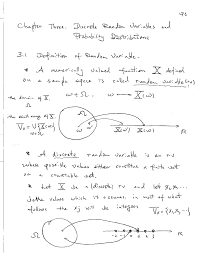 Chapter Three: Discrete Random Variables and
Probability Distributions
3.1 Definition of Random Variable.
* A numerically valued function X defined
on a sample space is called random variable (rv)
the domain of X.
ω ∈ Ω. ω ⟶ X(ω)
the range of X
Ω
ω ω X(ω) X(ω) R
* A discrete random variable is an rv
whose possible values either constitute a finite set
or a countable set.
* Let X be a (discrete) rv and let x₁, x₂, ...
be the values which it assumes, in most of what
follows the xj will be integers
Ω
R